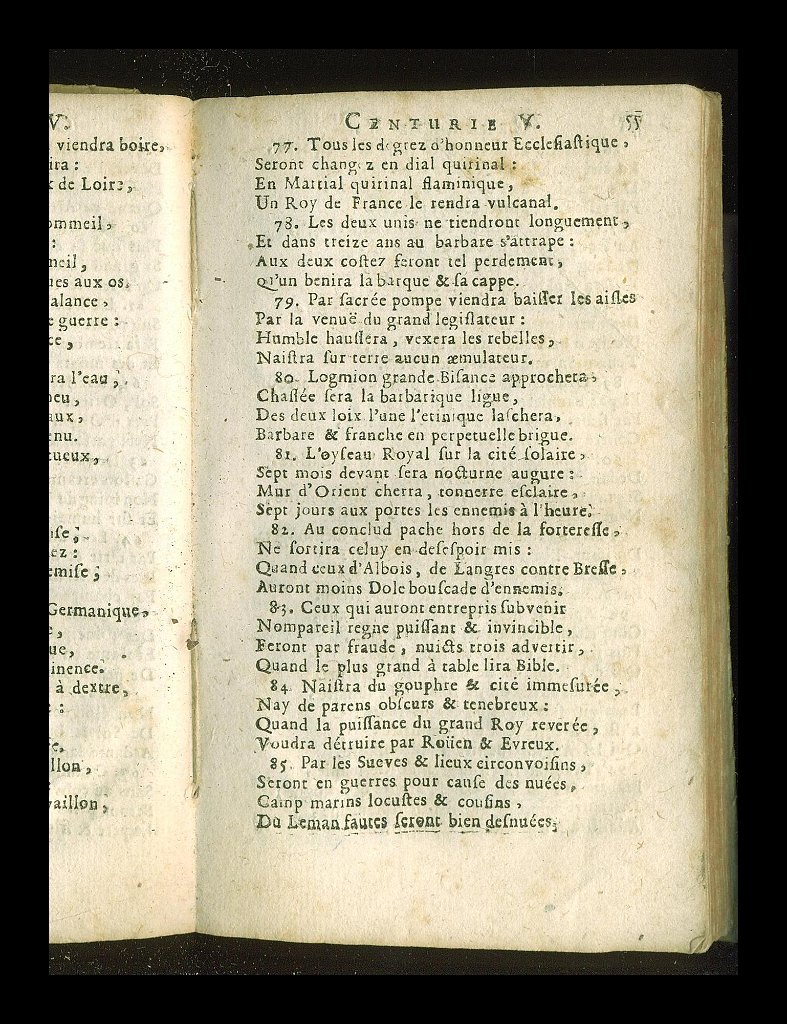 V.
viendra boire,
ira :
x de Loire,
ommeil,
:
meil,
ues aux os.
alance,
e guerre :
ce,
ra l'eau,
peu,
aux,
enu.
tueux,
ise;
ez :
emise;
Germanique,
e,
ue,
inence.
à dextre,
e :
e.
llon,
vaillon,
CENTURIE V. 55
77. Tous les degrez d'honneur Eccleſiaſtique,
Seront changez en dial quirinal :
En Martial quirinal flaminique,
Un Roy de France le rendra vulcanal.
78. Les deux unis ne tiendront longuement,
Et dans treize ans au barbare s'attrape :
Aux deux coſtez feront tel perdement,
Qu'un benira la barque & ſa cappe.
79. Par ſacrée pompe viendra baiſſer les aiſles
Par la venuë du grand legiſlateur :
Humble hauſſera, vexera les rebelles,
Naiſtra ſur terre aucun æmulateur.
80. Logmion grande Biſance approchera,
Chaſſée ſera la barbarique ligue,
Des deux loix l'une l'etinique laſchera,
Barbare & franche en perpetuelle brigue.
81. L'oyſeau Royal ſur la cité ſolaire,
Sept mois devant ſera nocturne augure :
Mur d'Orient cherra, tonnerre eſclaire,
Sept jours aux portes les ennemis à l'heure.
82. Au conclud pache hors de la fortereſſe,
Ne ſortira celuy en deſeſpoir mis :
Quand ceux d'Albois, de Langres contre Breſſe,
Auront moins Dole bouſcade d'ennemis.
83. Ceux qui auront entrepris ſubvenir
Nompareil regne puiſſant & invincible,
Feront par fraude, nuicts trois advertir,
Quand le plus grand à table lira Bible.
84. Naiſtra du gouphre & cité immeſurée,
Nay de parens obſcurs & tenebreux :
Quand la puiſſance du grand Roy reverée,
Voudra détruire par Roüen & Evreux.
85. Par les Sueves & lieux circonvoiſins,
Seront en guerres pour cauſe des nuées,
Camp marins locuſtes & couſins,
Du Leman fautes ſeront bien deſnuées.